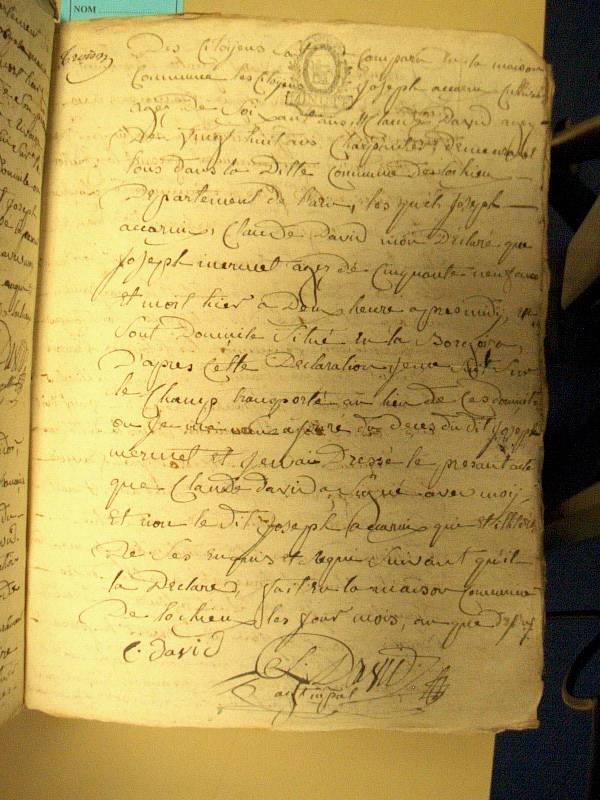 NOM
Des Citoyens a Comparu en la maison
Commune les Citoyens Joseph accarin Cultivateur
agés de Soixant ans & Claude David agé
De vingt huit ans Charpentier Demeurant
tous dans la Ditte Commune de lochieu
Departement de l'ain, les quels Joseph
accarin, Claude David mon Declaré que
Joseph mermet agés de Cinquante neuf ans
Et mort hier a Deux heure apres midy, en
Sont Domicile Situé en la
D'apres Cette Declaration je me Suit Sur
le Champ transporté au lieu de Ces domicile
ou Je me du deces du dit Joseph
mermet Et J'en ai Dressé le present acte
que Claude david a Signé avec moy
Et non le dit Joseph accarin que Et illitéré
De Ses Enquis et requi Suivant qu'il
la Declaré, fait en la maison Commune
De lochieu les jour mois, an que Dessus
C. David
C. David